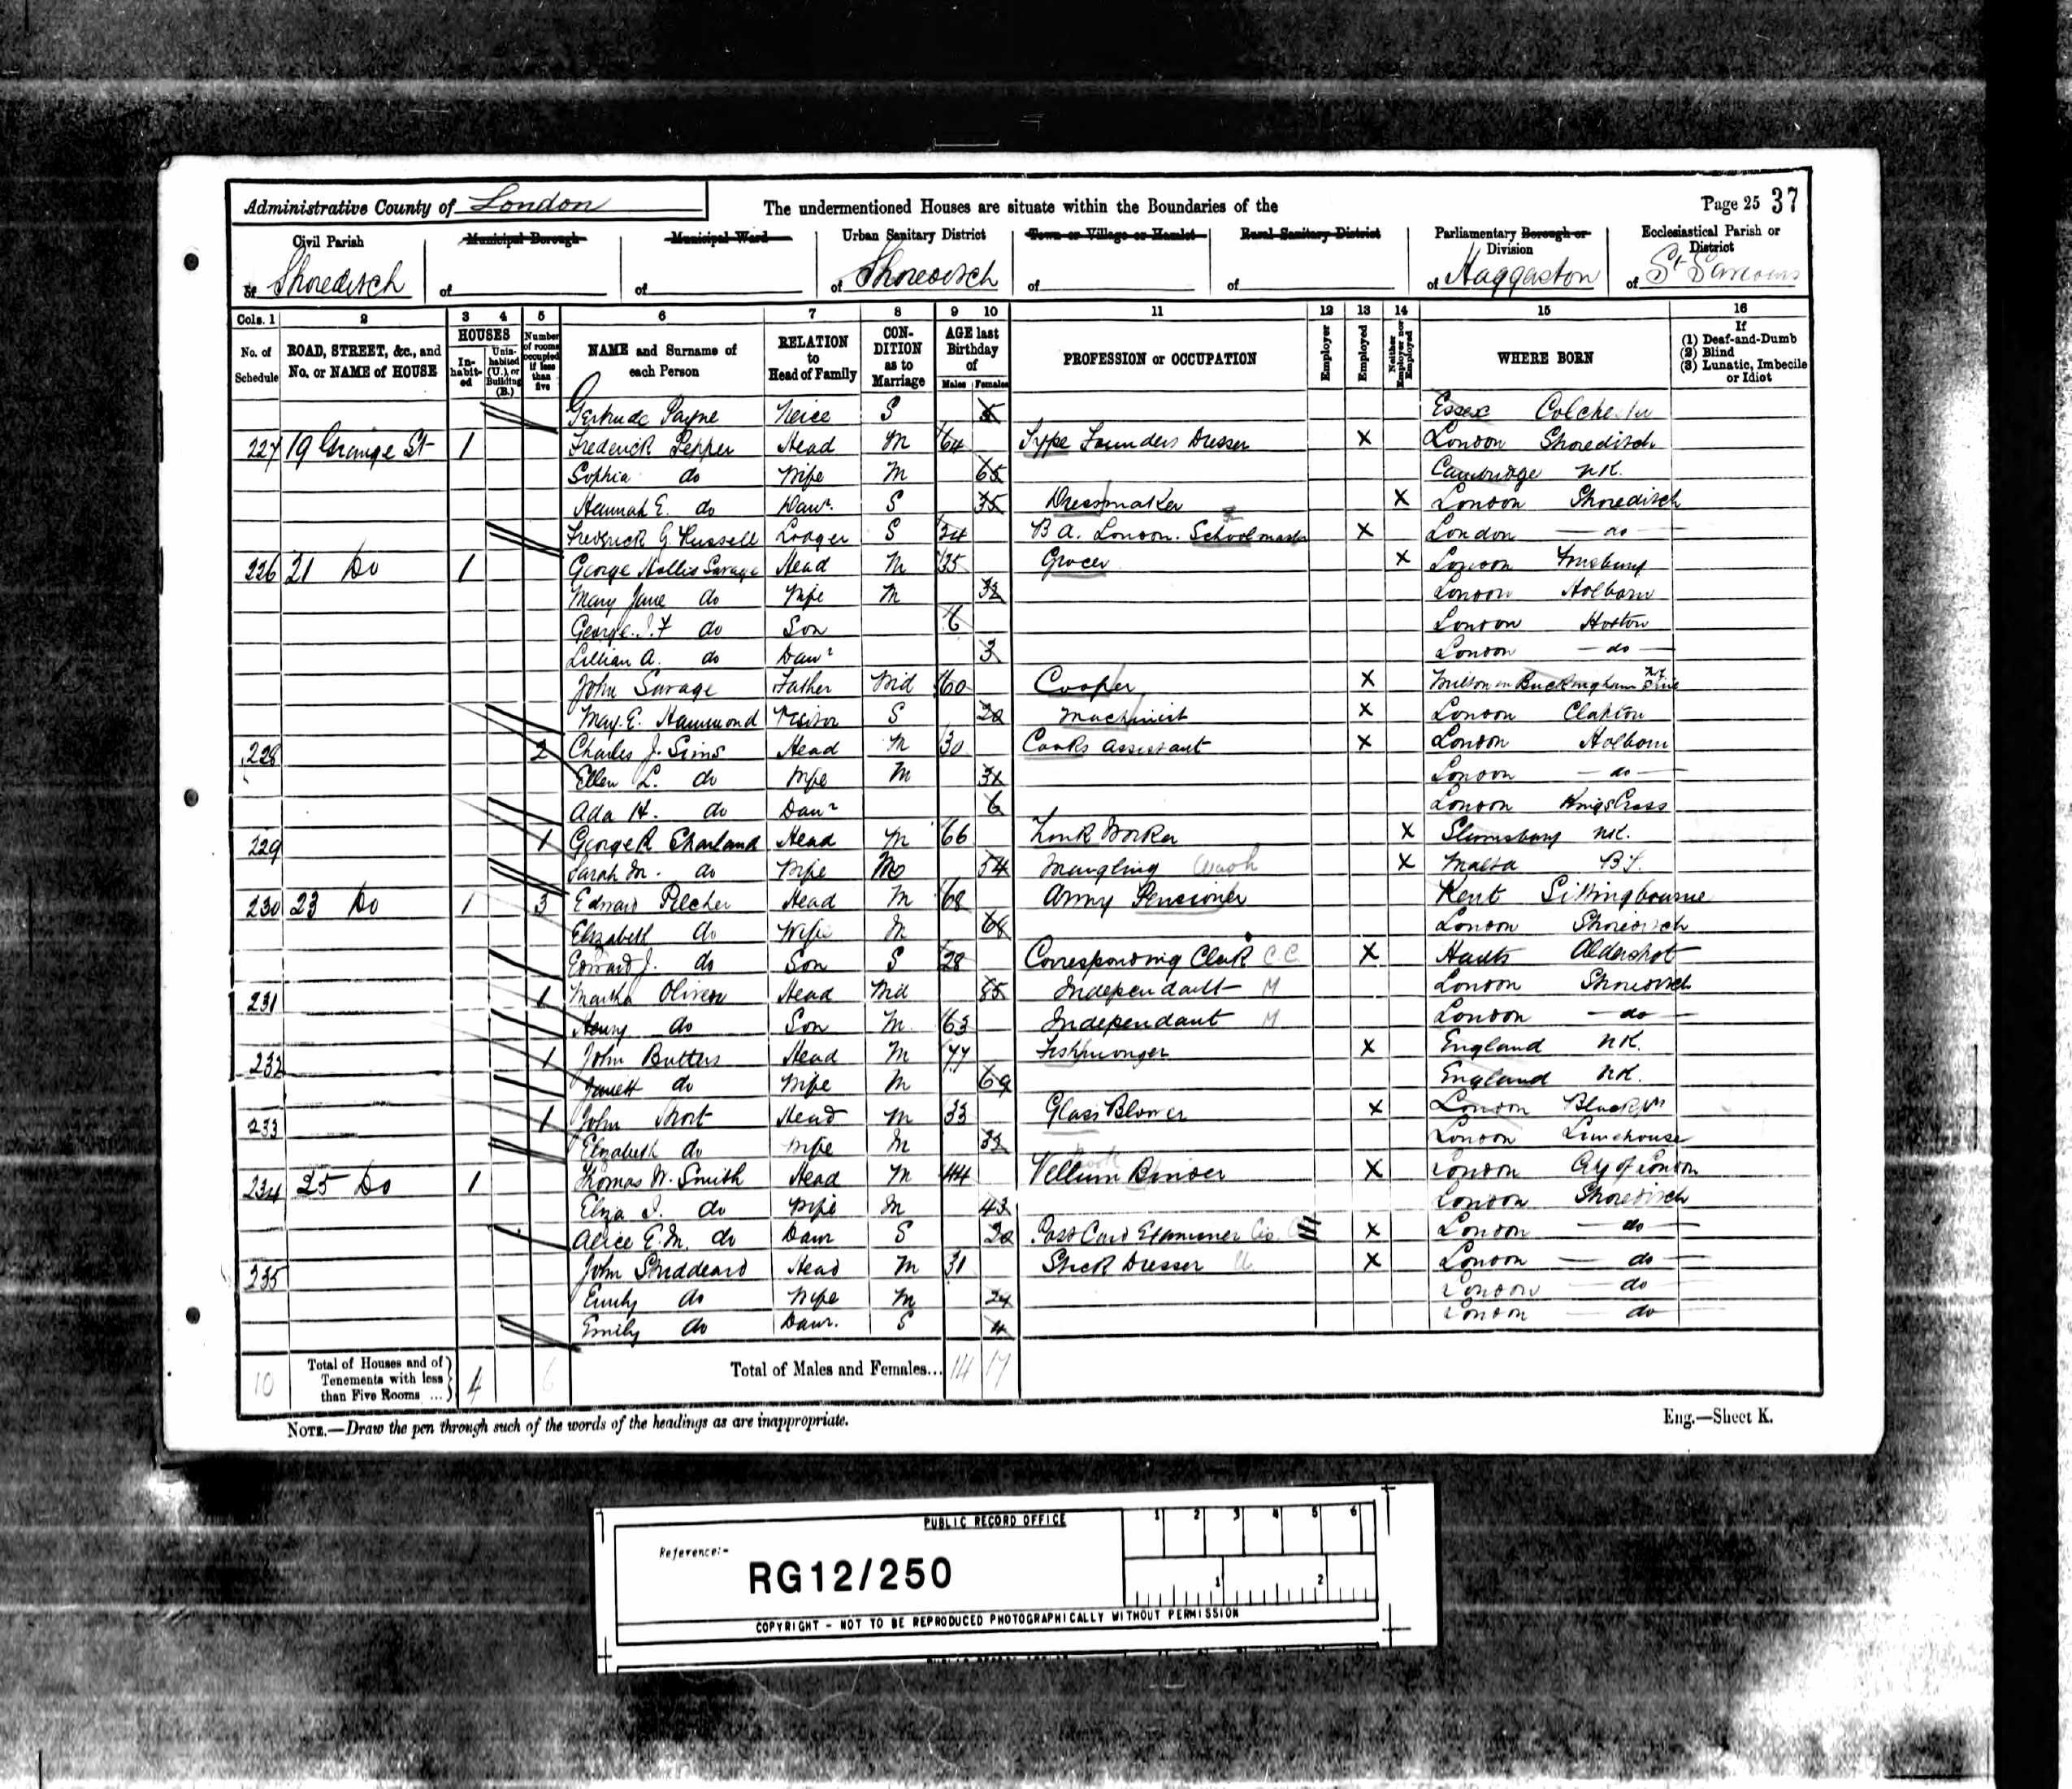 Administrative County of London
The undermentioned Houses are situate within the Boundaries of the
Page 25 37
Civil Parish of Shoreditch
Municipal Borough of
Municipal Ward of
Urban Sanitary District of Shoreditch
Town or Village or Hamlet of
Rural Sanitary District of
Parliamentary Borough or Division of Haggerston
Ecclesiastical Parish or District of St
Cols. 1 2 3 4 5 6 7 8 9 10 11 12 13 14 15 16
No. of Schedule
ROAD, STREET, &c., and No. or NAME of HOUSE
HOUSES
In-habit-ed
Unin-habited (U.), or Building (B.)
Number of rooms occupied if less than five
NAME and Surname of each Person
RELATION to Head of Family
CON-DITION as to Marriage
AGE last Birthday of
Males Females
PROFESSION or OCCUPATION
Employer
Employed
Neither Employer nor Employed
WHERE BORN
If (1) Deaf-and-Dumb (2) Blind (3) Lunatic, Imbecile or Idiot
Gertrude Payne Neice S Essex Colchester
227 19 Grange St 1 Frederick Pepper Head M 64 Type Founders Dresser X London Shoreditch
Sophia do Wife M 65 Cambridge NK.
Hannah E. do Dawr. S 35 Dressmaker X London Shoreditch
Frederick G. Russell Lodger S 34 BA. London. Schoolmaster X London — do —
226 21 Do 1 George Hollis Savage Head M 35 Grocer X London Finsbury
Mary Jane do Wife M 32 London Holborn
George do Son 6 London Hoxton
Lillian A. do Dawr 3 London — do —
John Savage Father Wid 60 Cooper X Buckingham
May. E. Hammond Visitor S 20 Machinist X London Clapton
228 2 Charles J. Sims Head M 30 Cooks Assistant X London Holborn
Ellen L. do Wife M 31 London — do —
Ada H. do Dawr 6 London Kings Cross
229 1 George R Head M 66 Zink Worker X NK.
Sarah M. do Wife M 54 Mangling Wash X Malta B.S.
230 23 Do 1 3 Edward Pilcher Head M 68 Army Pensioner Kent Sittingbourne
Elizabeth do Wife M 68 London Shoreditch
Edward J. do Son S 28 Corresponding Clerk C C X Hants Aldershot
231 1 Martha Oliver Head Wid 85 Independant M London Shoreditch
Henry do Son M 63 Independant M London — do —
232 1 John Butters Head M 77 Fishmonger X England NK.
do Wife M 69 England NK.
233 1 John Short Head M 33 Glass Blower X London
Elizabeth do Wife M 32 London Limehouse
234 25 Do 1 Thomas W. Smith Head M 44 Vellum Binder X London City of London
Eliza J. do Wife M 43 London Shoreditch
Alice E.M. do Dawr S 20 Post Card Examiner X London — do —
235 John Head M 31 Stick Dresser X London — do —
Emily do Wife M 24 London — do
Emily do Dawr. S 4 London — do
10 Total of Houses and of Tenements with less than Five Rooms ... 4 6 Total of Males and Females... 14 17
NOTE.—Draw the pen through such of the words of the headings as are inappropriate.
Eng.—Sheet K.
PUBLIC RECORD OFFICE
1 2 3 4 5 6
Reference:-
RG12/250
1 2
COPYRIGHT - NOT TO BE REPRODUCED PHOTOGRAPHICALLY WITHOUT PERMISSION